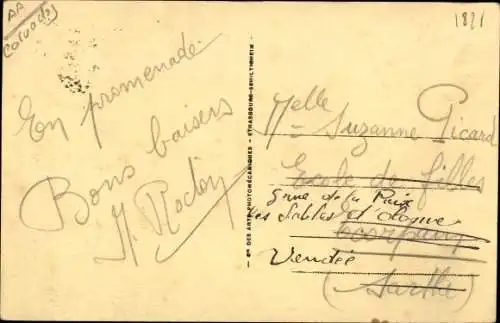 AA
Calvados
1821
En promenade
Bons baisers
Cie DES ARTS PHOTOMÉCANIQUES - STRASBOURG-SCHILTIGHEIM
Melle
Suzanne Picard
Ecole de filles
5 rue de la Paix
Les Sables d'Olonne
Vendée
(Sarthe)